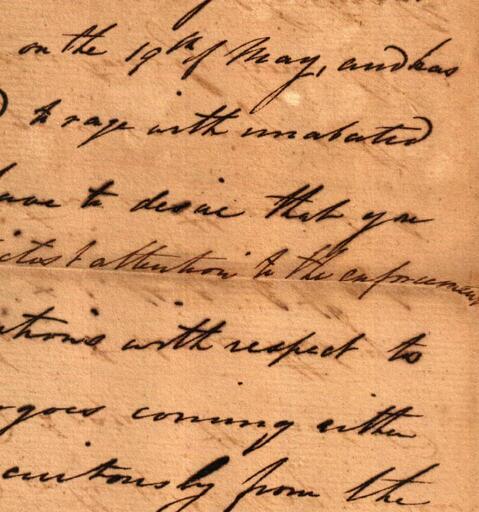 on the 19th of May, and has
to rage with unabated
have to desire that you
ictest attention to the enforcement
ations with respect to
rgoes coming either
cuitously from the